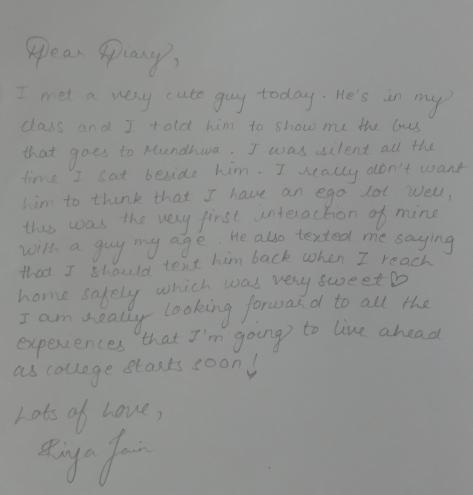 Dear Diary,
I met a very cute guy today. He's in my
class and I told him to show me the bus
that goes to Mundhwa. I was silent all the
time I sat beside him. I really don't want
him to think that I have an ego lol. Well,
this was the very first interaction of mine
with a guy my age. He also texted me saying
that I should text him back when I reach
home safely which was very sweet♡
I am really looking forward to all the
experiences that I'm going to live ahead
as college starts soon!
Lots of Love,
Riya Jain